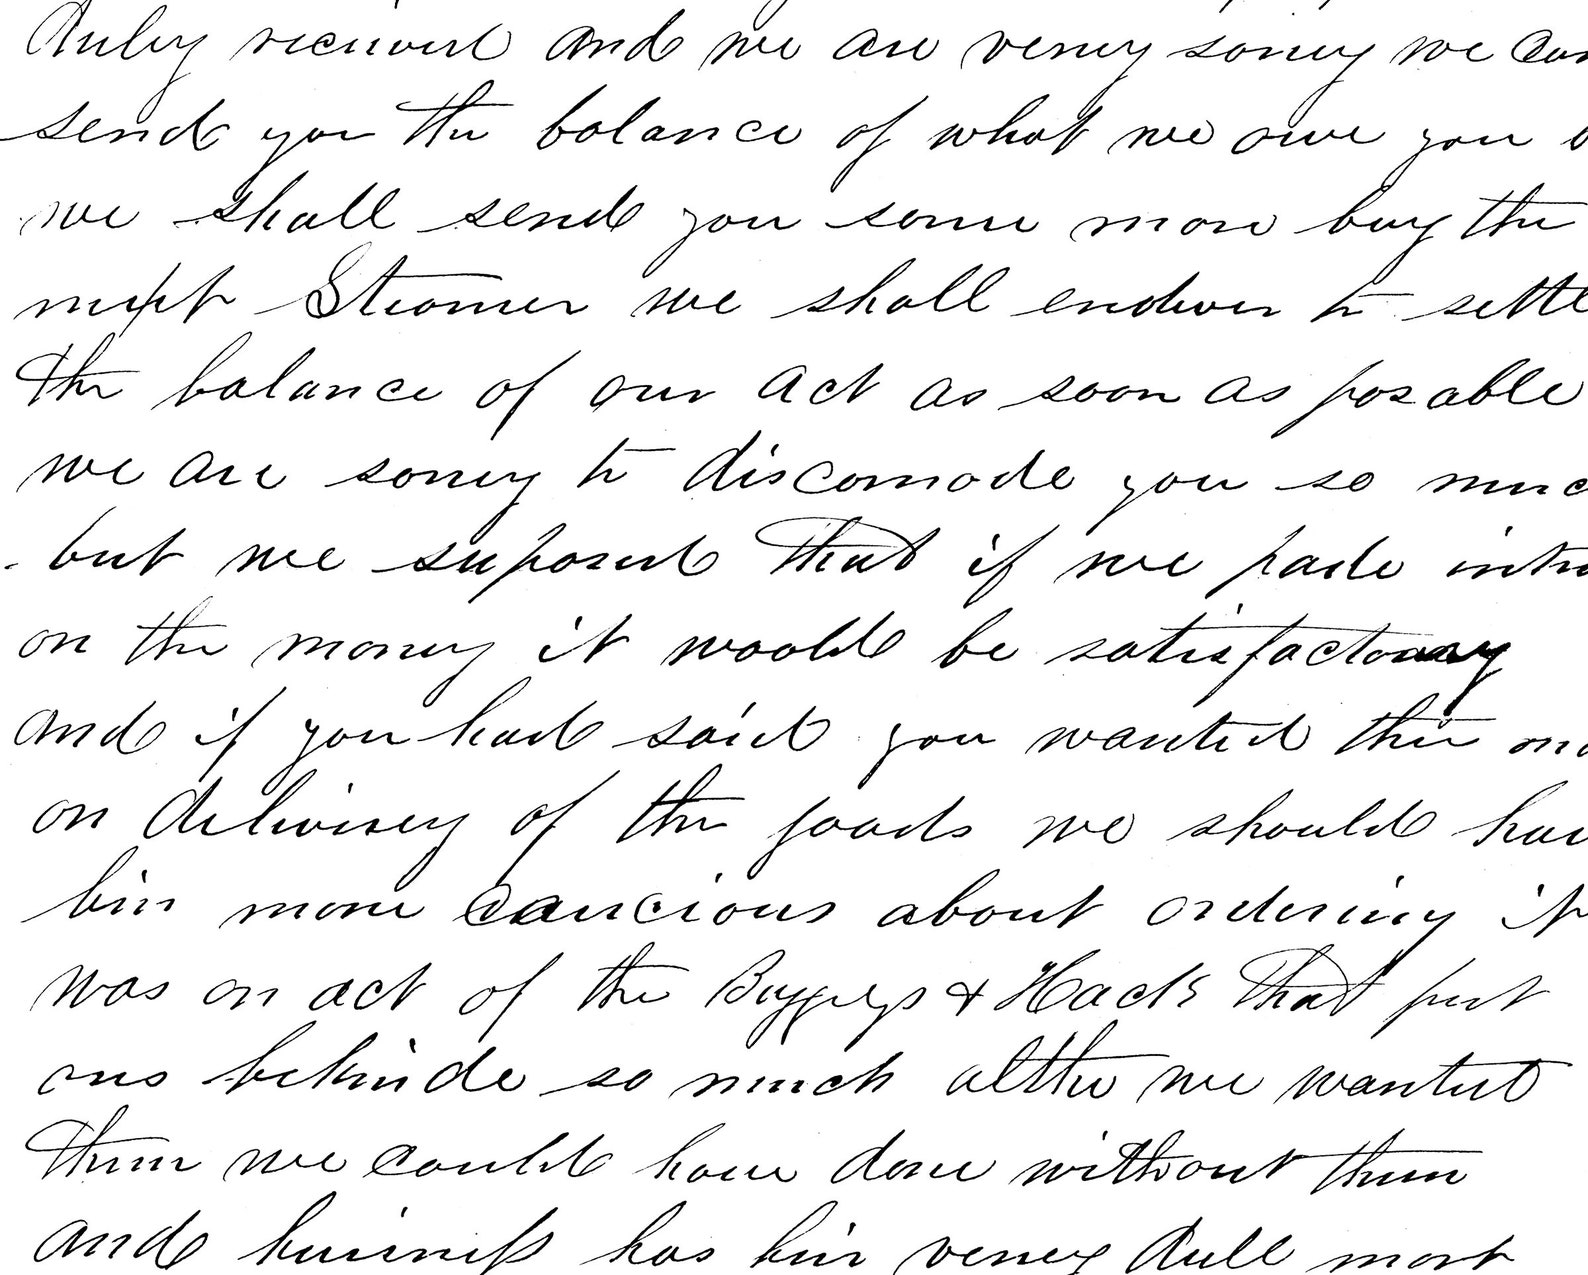 Duley received and we are verey sorrey we can
send you the balance of what we owe you
we shall send you some more buy the
next Steamer we shall endever to settle
the balance of our act as soon as posable
we are sorrey to discomode you so muc
but we suposed that if we pade intr
on the money it woold be satisfactory
and if you had said you wanted the mo
on deliverey of the goods we should hav
bin more caucious about ordering it
was on act of the Buggeys & Hacks that put
ous behinde so much altho we wanted
them we could have done without them
and buisness has bin verey dull most